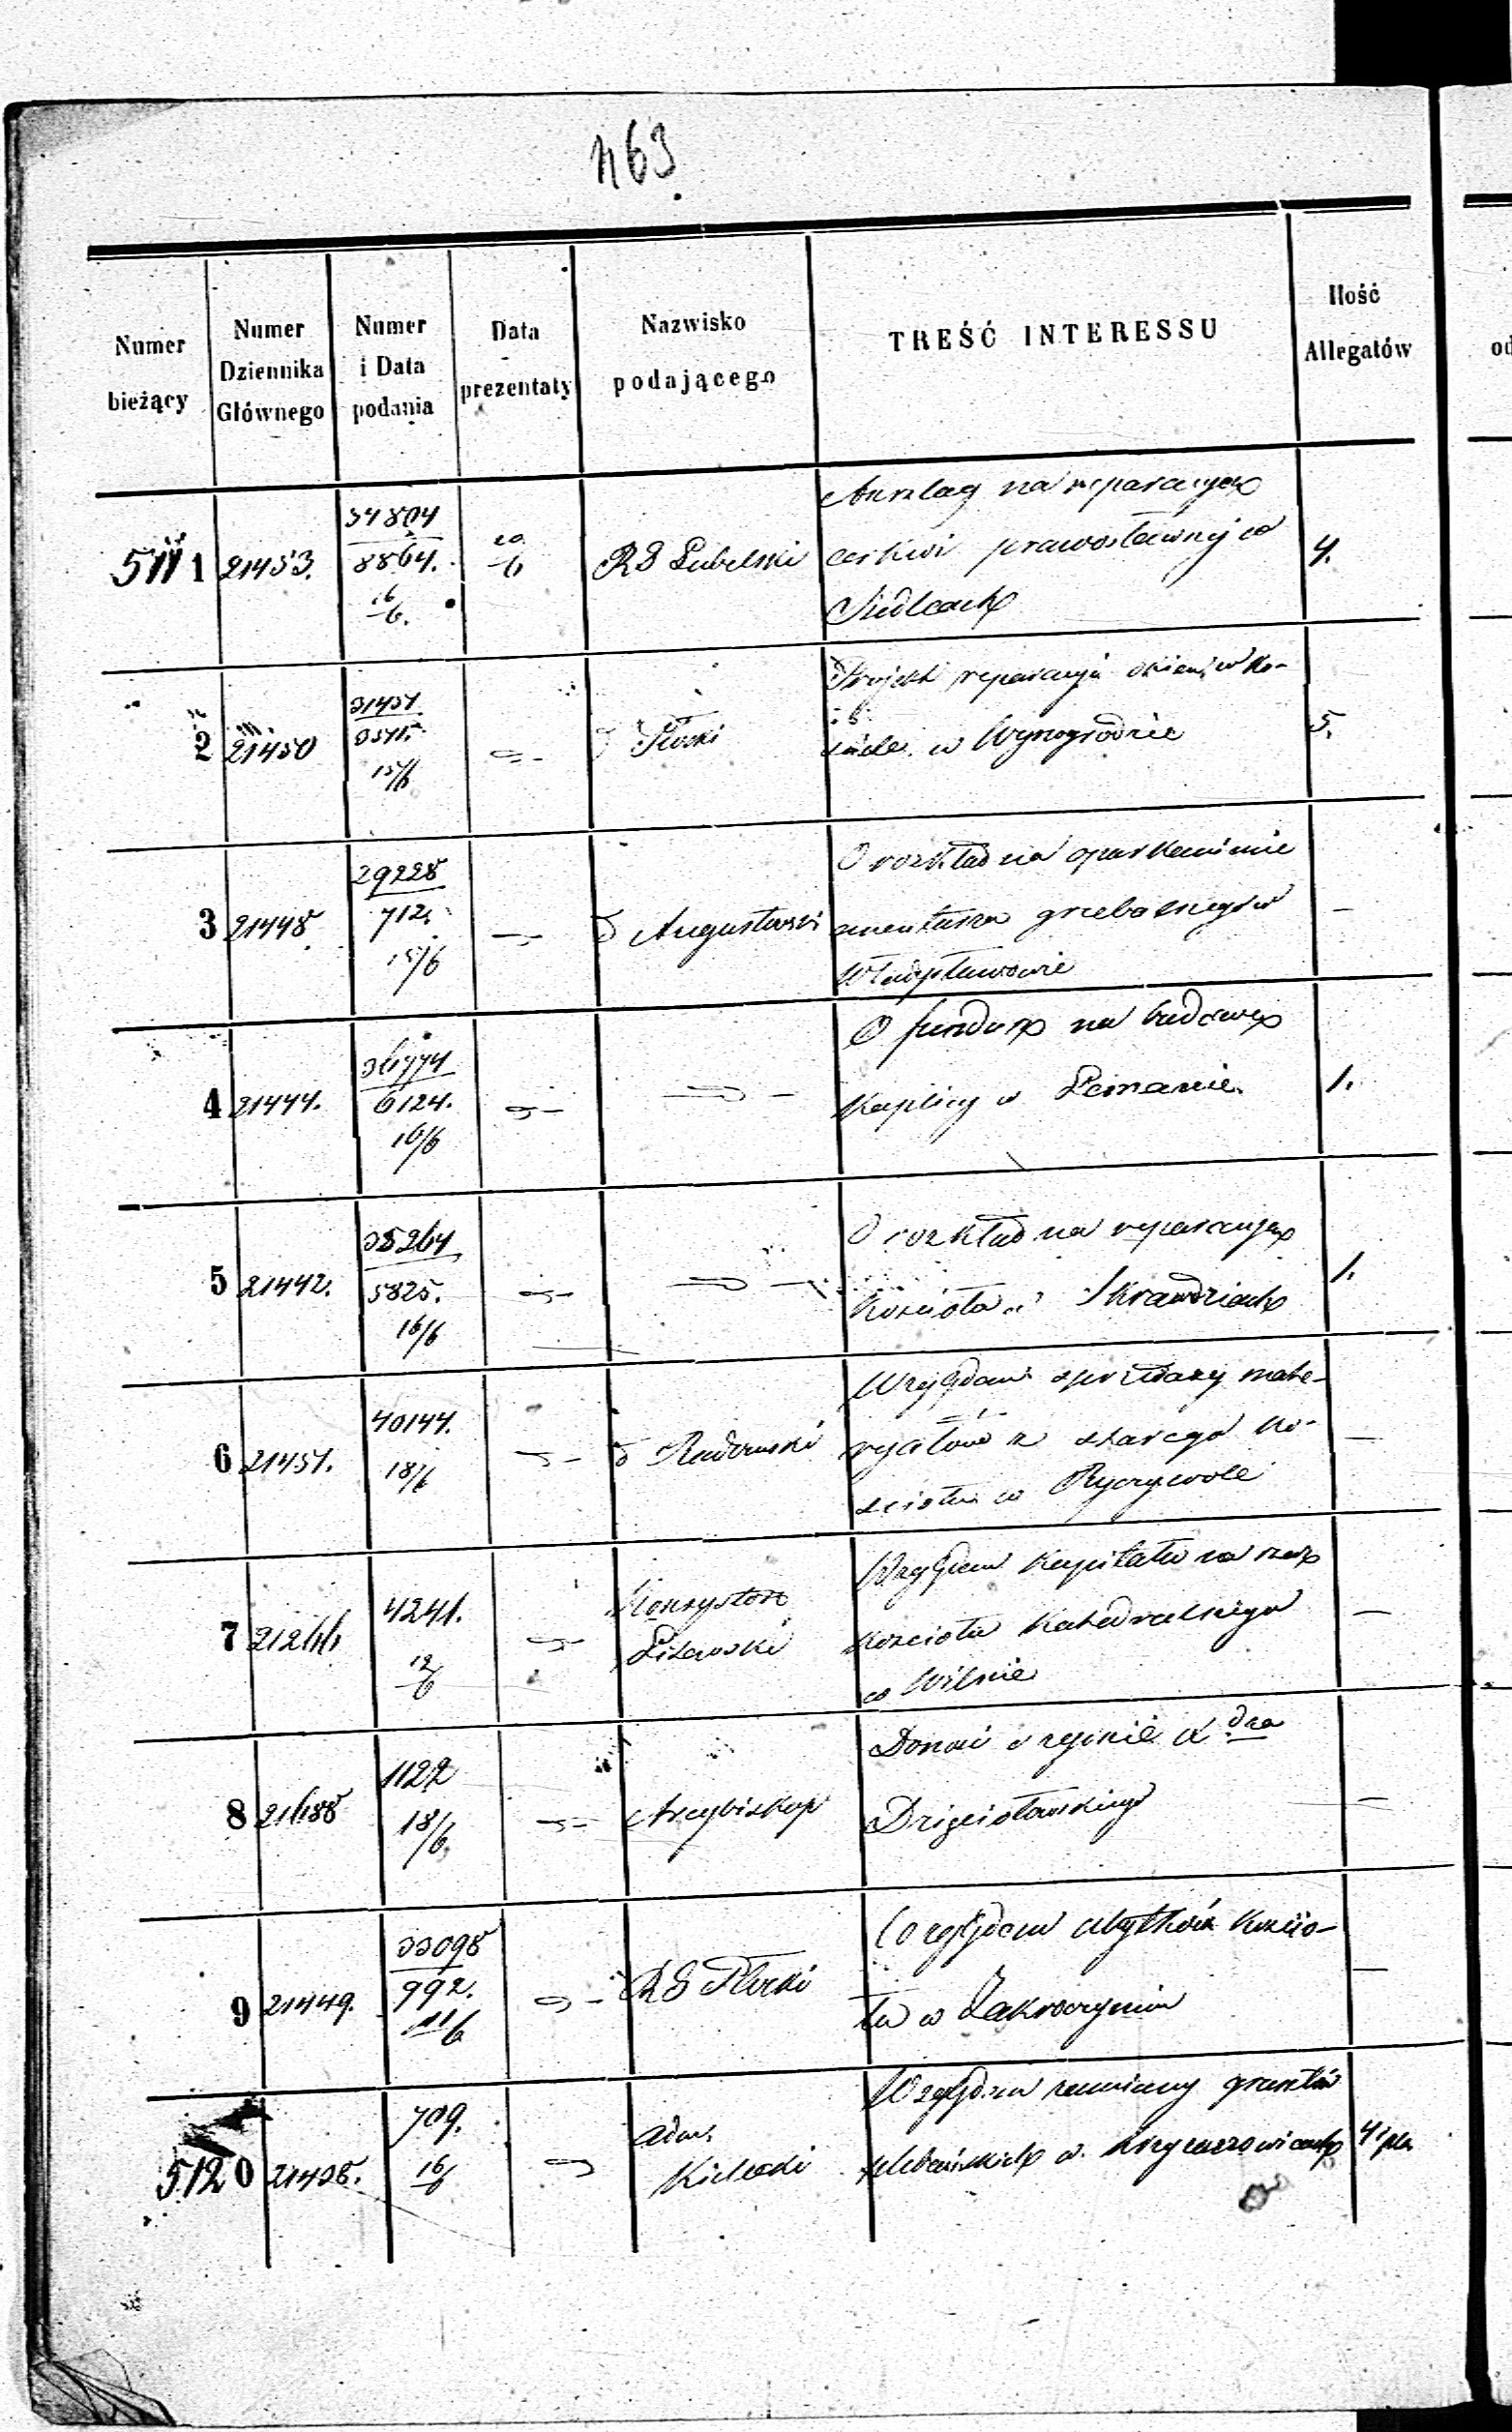 463.
Numer bieżący
Numer Dziennika Głównego
Numer i Data podania
Data prezentaty
Nazwisko podającego
TREŚĆ INTERESSU
Ilość Allegatów
5111 21453. 34804 / 8864. 16/6. 20/6 RG Lubelski Anszlag na reparacyę 4.
cerkwi prawosławnej w
Siedlcach
2 21450 15/6 Płocki Projekt reparacyi w Ko- 5.
ściele w Wyszogrodzie
3 21448 29228 / 712. 15/6 Augustowski O rozkład na oparkanienie —
cmentarza grzebalnego w
Władysławowie
4 21444. 36774 / 6124. 16/6 O fundusz na budowę 1.
Kaplicy w
5 21442. 35264 / 5825. 16/6 O rozkład na reparacyę 1.
Kościoła w
6 21451. 40144. 18/6 Radomski Względem sprzedaży mate- —
ryałów z starego Ko-
ścioła w Ryczywole
7 21266 4241. 12/6 Konsystorz Względem Kapitału na rzecz —
Kościoła Katedralnego
w Wilnie
8 21688 1122 18/6. Arcybiskup Donosi o zgonie Xdza —
9 21449. 33098 / 992. 11/6 RG Płocki Względem Kościo- —
ła w Zakroczymiu
5120 21438. 709. 16/6 Adm. Kielecki Względem zamiany gruntów 4
plebańskich w